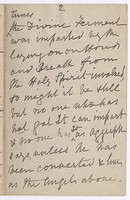 2
times
the Divine Ferment
was imparted by the
laying on of Hands
and Breath from
the Holy Spirit invoked
So might it be still
but no one who has
not got It can impart
& no one has It as
says unless he has
been connected &
as the Angels above.